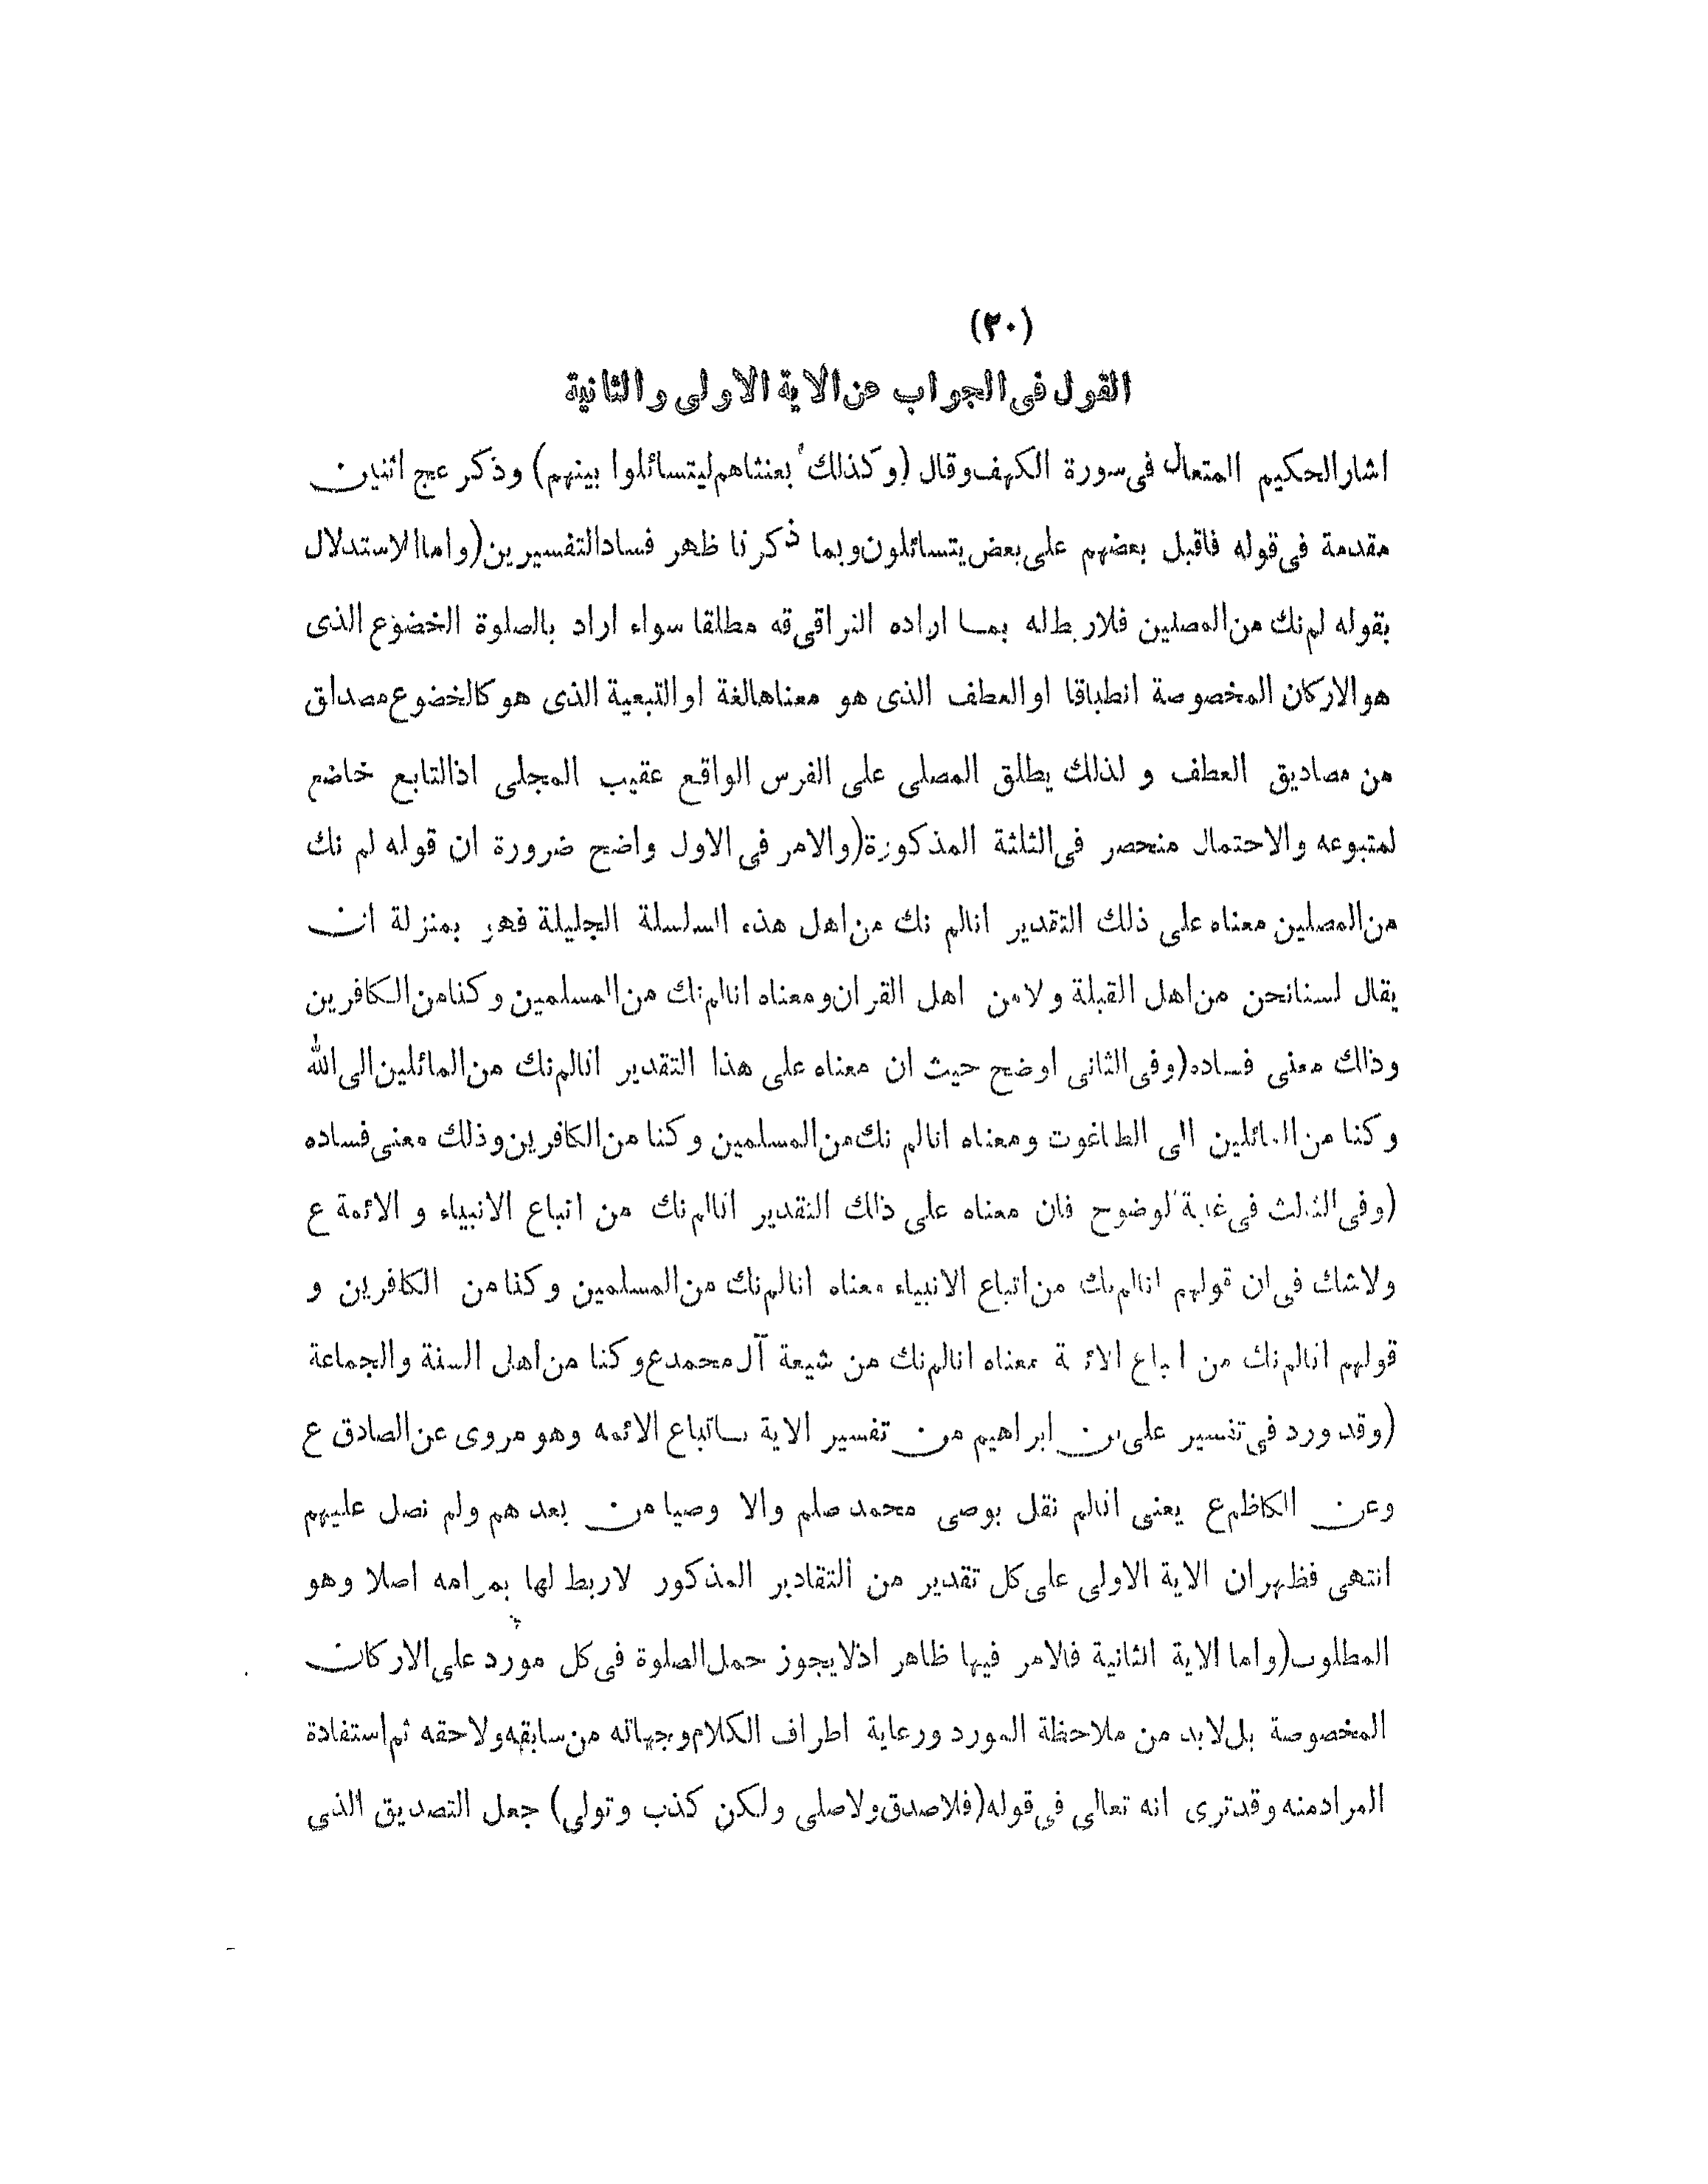 (٢٠)
القول فى الجواب عن الاية الاولى والثانية
اشار الحكيم المتعال فى سورة الكهف وقال (وكذلك بعثناهم ليتسائلوا بينهم) وذكر عج اثنين
مقدمة فى قوله فاقبل بعضهم على بعض يتسائلون وبما ذكرنا ظهر فساد التفسيرين (واما الاستدلال
بقوله لم نك من المصلين فلا ربط له بما اراده النراقى قه مطلقا سواء اراد بالصلوة الخضوع الذى
هو الاركان المخصوصة انطباقا او العطف الذى هو معناها لغة او التبعية الذى هو كالخضوع مصداق
من مصاديق العطف و لذلك يطلق المصلى على الفرس الواقع عقيب المجلى اذ التابع خاضع
لمتبوعه والاحتمال منحصر فى الثلثة المذكورة (والامر فى الاول واضح ضرورة ان قوله لم نك
من المصلين معناه على ذلك التقدير انا لم نك من اهل هذه السلسلة الجليلة فهو بمنزلة ان
يقال لسنا نحن من اهل القبلة ولا من اهل القران ومعناه انا لم نك من المسلمين وكنا من الكافرين
وذالك معنى فساده (وفى الثانى اوضح حيث ان معناه على هذا التقدير انا لم نك من المائلين الى الله
وكنا من المائلين الى الطاغوت ومعناه انا لم نك من المسلمين وكنا من الكافرين وذلك معنى فساده
(وفى الثالث فى غاية الوضوح فان معناه على ذالك التقدير انا لم نك من اتباع الانبياء و الائمة ع
ولا شك فى ان قولهم انا لم نك من اتباع الانبياء معناه انا لم نك من المسلمين وكنا من الكافرين و
قولهم انا لم نك من اتباع الائمة معناه انا لم نك من شيعة آل محمد ع وكنا من اهل السنة والجماعة
(وقد ورد فى تفسير على بن ابراهيم من تفسير الاية باتباع الائمه وهو مروى عن الصادق ع
وعن الكاظم ع يعنى انا لم نقل بوصى محمد صلم والا وصيا من بعدهم ولم نصل عليهم
انتهى فظهر ان الاية الاولى على كل تقدير من التقادير المذكور لا ربط لها بمرامه اصلا وهو
المطلوب (واما الاية الثانية فالامر فيها ظاهر اذ لا يجوز حمل الصلوة فى كل مورد على الاركان
المخصوصة بل لابد من ملاحظة المورد ورعاية اطراف الكلام وجهاته من سابقه ولاحقه ثم استفادة
المراد منه وقد ترى انه تعالى فى قوله (فلا صدق ولا صلى ولكن كذب وتولى) جعل التصديق الذى